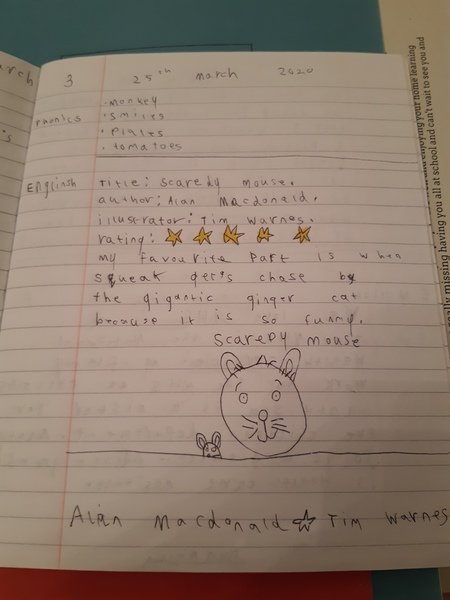 arch
3 25th march 2020
's
Phonics
• monkey
• smiles
• plates
• tomatoes
Englinsh
title: scaredy mouse.
author: Alan Macdonald.
illustrator: Tim warnes.
rating:
my favourite part is when
squeak get's chase by
the gigantic ginger cat
because it is so funny.
scaredy mouse
Alan Macdonald Tim warnes
enjoying your home learning
eally missing having you all at school and can't wait to see you and